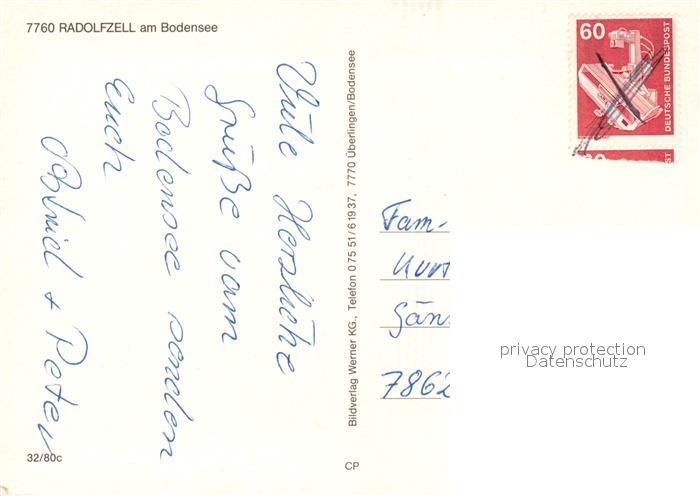 7760 RADOLFZELL am Bodensee
Viele Herzliche
Grüße vom
Bodensee senden
Euch
Astrid + Peter
32/80c
Bildverlag Werner KG., Telefon 0 75 51/6 19 37, 7770 Überlingen/Bodensee
CP
60
DEUTSCHE BUNDESPOST
Fam-
Kurt
Gän
7862
privacy protection
Datenschutz